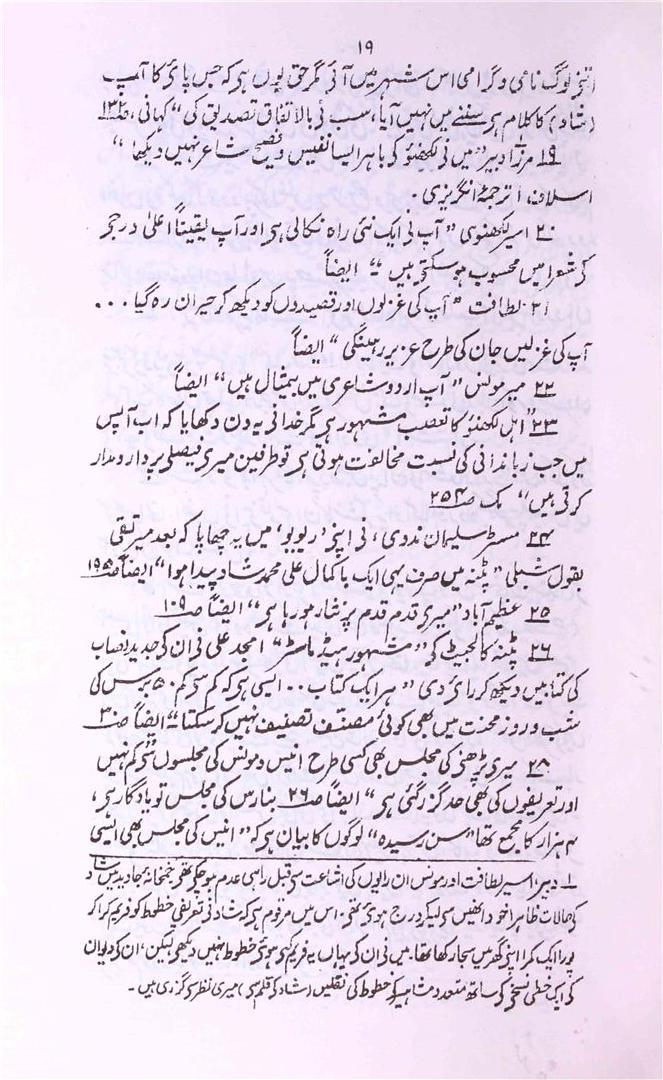 ۱۹
اتنے لوگ نامی و گرامی اس شہر میں آئے مگر حق یوں ہی کہ جس پائے کا آپ
(شاد) کا کلام ہے سننے میں نہیں آیا، سب نے بالاتفاق تصدیق کی“ کہانی، ص۱۳۲
۱۹ مرزا دبیر ”میں نے لکھنؤ کے باہر ایسا نفیس و فصیح شاعر نہیں دیکھا“
اسلاف، ترجمۂ انگریزی۔
۲۰ اسیر لکھنوی ”آپ نے ایک نئی راہ نکالی ہے اور آپ یقیناً اعلیٰ درجے
کے شعرا میں محسوب ہو سکتے ہیں“ ایضاً
۲۱ لطافت ”آپ کی غزلوں اور قصیدوں کو دیکھ کر حیران رہ گیا ...
آپ کی غزلیں جان کی طرح عزیز رہینگی“ ایضاً
۲۲ میر مونس ”آپ اردو شاعری میں بیمثال ہیں“ ایضاً
۲۳ ”اہل لکھنؤ کا تعصب مشہور ہے مگر خدا نے یہ دن دکھایا کہ اب آپس
میں جب زباندانی کی نسبت مخالفت ہوتی ہے تو طرفین میرے فیصلے پر دار و مدار
کرتے ہیں“ مک ص۲۵۴
۲۴ مسٹر سلیمان ندوی، نے اپنے ’ریویو‘ میں یہ چھاپا کہ بعد میر تقی
بقول شبلی ”پٹنہ میں صرف یہی ایک با کمال علی محمد شاد پیدا ہوا“ ایضاً ص۱۹۵
۲۵ عظیم آباد ”میرے قدم قدم پر نثار ہو رہا ہے“ ایضاً ص۱۰۹
۲۶ پٹنہ کالجیٹ کے ”مشہور ہیڈ ماسٹر“ امجد علی نے ان کی جدید نصاب
کی کتابیں دیکھ کر رائے دی ”ہر ایک کتاب .. ایسی ہے کہ کم سے کم ۵۰ برس کی
شب و روز محنت میں بھی کوئی مصنف تصنیف نہیں کر سکتا“ ایضاً ص۳۰
۲۸ میرے پڑھنے کی مجلس بھی کسی طرح انیس و مونس کی مجلسوں سے کم نہیں
اور تعریفوں کی بھی حد گزر گئی ہے“ ایضاً ص۲۶ بنارس کی مجلس تو یادگار ہے،
۴ ہزار کا مجمع تھا ”سن رسیدہ“ لوگوں کا بیان ہے کہ ”انیس کی مجلس بھی ایسی
۱ دبیر، اسیر لطافت اور مونس ان رایوں کی اشاعت سے قبل راہی عدم ہو چکے تھے، خمخانۂ جاوید میں شاد
کے حالات ظاہرا خود انھیں سے لیکر درج ہوئے تھے، اس میں مرقوم ہے کہ شاد نے تعریفی خطوط کو فریم کرا کر
پورا ایک کمرا اپنے گھر میں سجا رکھا تھا۔ میں نے ان کے یہاں یہ فریم کیے ہوئے خطوط نہیں دیکھے لیکن، ان کے دیوان
کے ایک خطی نسخے کے ساتھ متعدد مشاہیر کے خطوط کی نقلیں (شاد کے قلم سے) میری نظر سے گزری ہیں۔